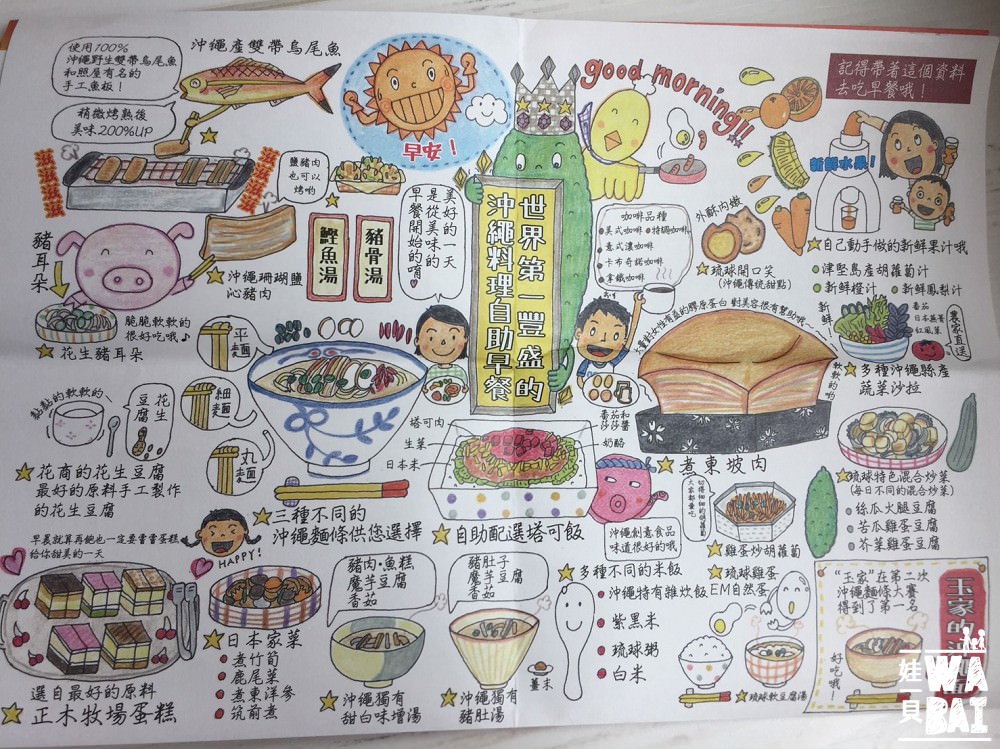 使用100%
沖繩野生雙帶烏尾魚
和照屋有名的
手工魚板！
沖繩產雙帶烏尾魚
稍微烤熟後
美味200%UP
滋滋滋滋滋
滋滋滋滋滋
早安！
good morning!!
記得帶著這個資料
去吃早餐哦！
鹽豬肉
也可以
烤喲
美好的一天
是從美味的
早餐開始的唷
世界第一豐盛的
沖繩料理自助早餐
咖啡品種
美式咖啡
特調咖啡
意式濃咖啡
卡布奇諾咖啡
拿鐵咖啡
外酥內嫩
琉球開口笑
(沖繩傳統甜點)
新鮮水果！
自己動手做的新鮮果汁哦
津堅島產胡蘿蔔汁
新鮮橙汁
新鮮鳳梨汁
豬耳朵
沖繩珊瑚鹽
沁豬肉
鰹魚湯
豬骨湯
脆脆軟軟的
很好吃哦♪
花生豬耳朵
平麵
細麵
丸麵
大量對女性有益的膠原蛋白 對美容很有幫助哦～
軟軟的喲
煮東坡肉
新鮮
番茄
日本蕪菁
紅鳳菜
農家直送
多種沖繩縣產
蔬菜沙拉
黏黏的軟軟的
花生
豆腐
花商的花生豆腐
最好的原料手工製作
的花生豆腐
三種不同的
沖繩麵條供您選擇
塔可肉
生菜
日本米
番茄和
莎莎醬
奶酪
自助配選塔可飯
沖繩創意食品
味道很好的哦
切得細細的胡蘿蔔
大家都愛吃
雞蛋炒胡蘿蔔
琉球特色混合炒菜
(每日不同的混合炒菜)
絲瓜火腿豆腐
苦瓜雞蛋豆腐
芥菜雞蛋豆腐
早義就算再飽也一定要嘗嘗蛋糕
給你甜美的一天
HAPPY!
選自最好的原料
正木牧場蛋糕
日本家菜
煮竹筍
鹿尾菜
煮東洋參
筑前煮
豬肉·魚糕
魔芋豆腐
香菇
沖繩獨有
甜白味增湯
豬肚子
魔芋豆腐
香菇
薑末
沖繩獨有
豬肚湯
多種不同的米飯
沖繩特有雜炊飯
紫黑米
琉球粥
白米
琉球雞蛋
EM自然蛋
琉球軟豆腐湯
“玉家”在第二次
沖繩麵條大賽
得到了第一名
好吃哦！
玉家的
娃貝
WA
BAI